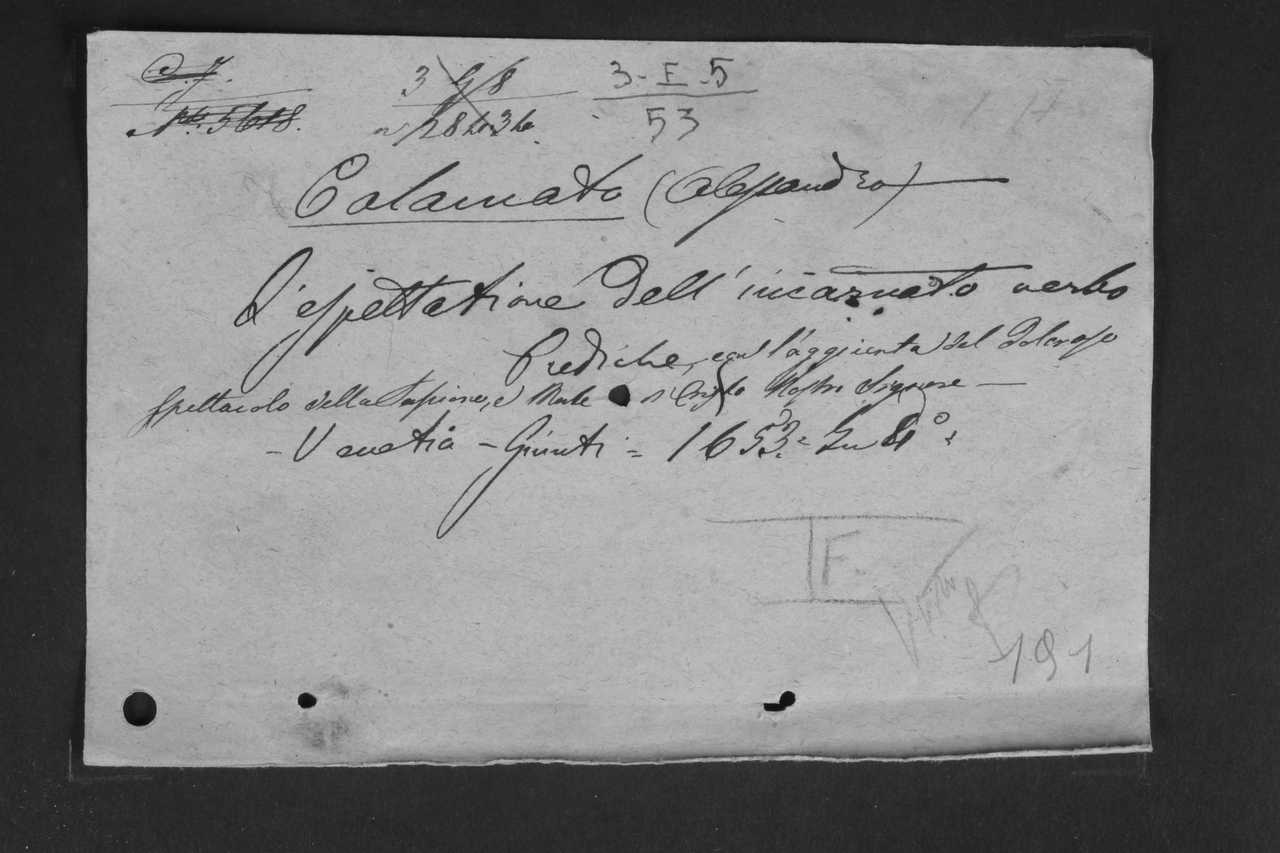 3 G 8 3-E-5
No. 5618. 28 53
Calamato (Alessandro)
L'espettatione dell'incarnato verbo
Prediche, con l'aggiunta del doloroso
spettacolo della Passione, e Morte di Christo Nostro Signore —
- Venetia - Giunti = 1653. = In 4°
F.
191